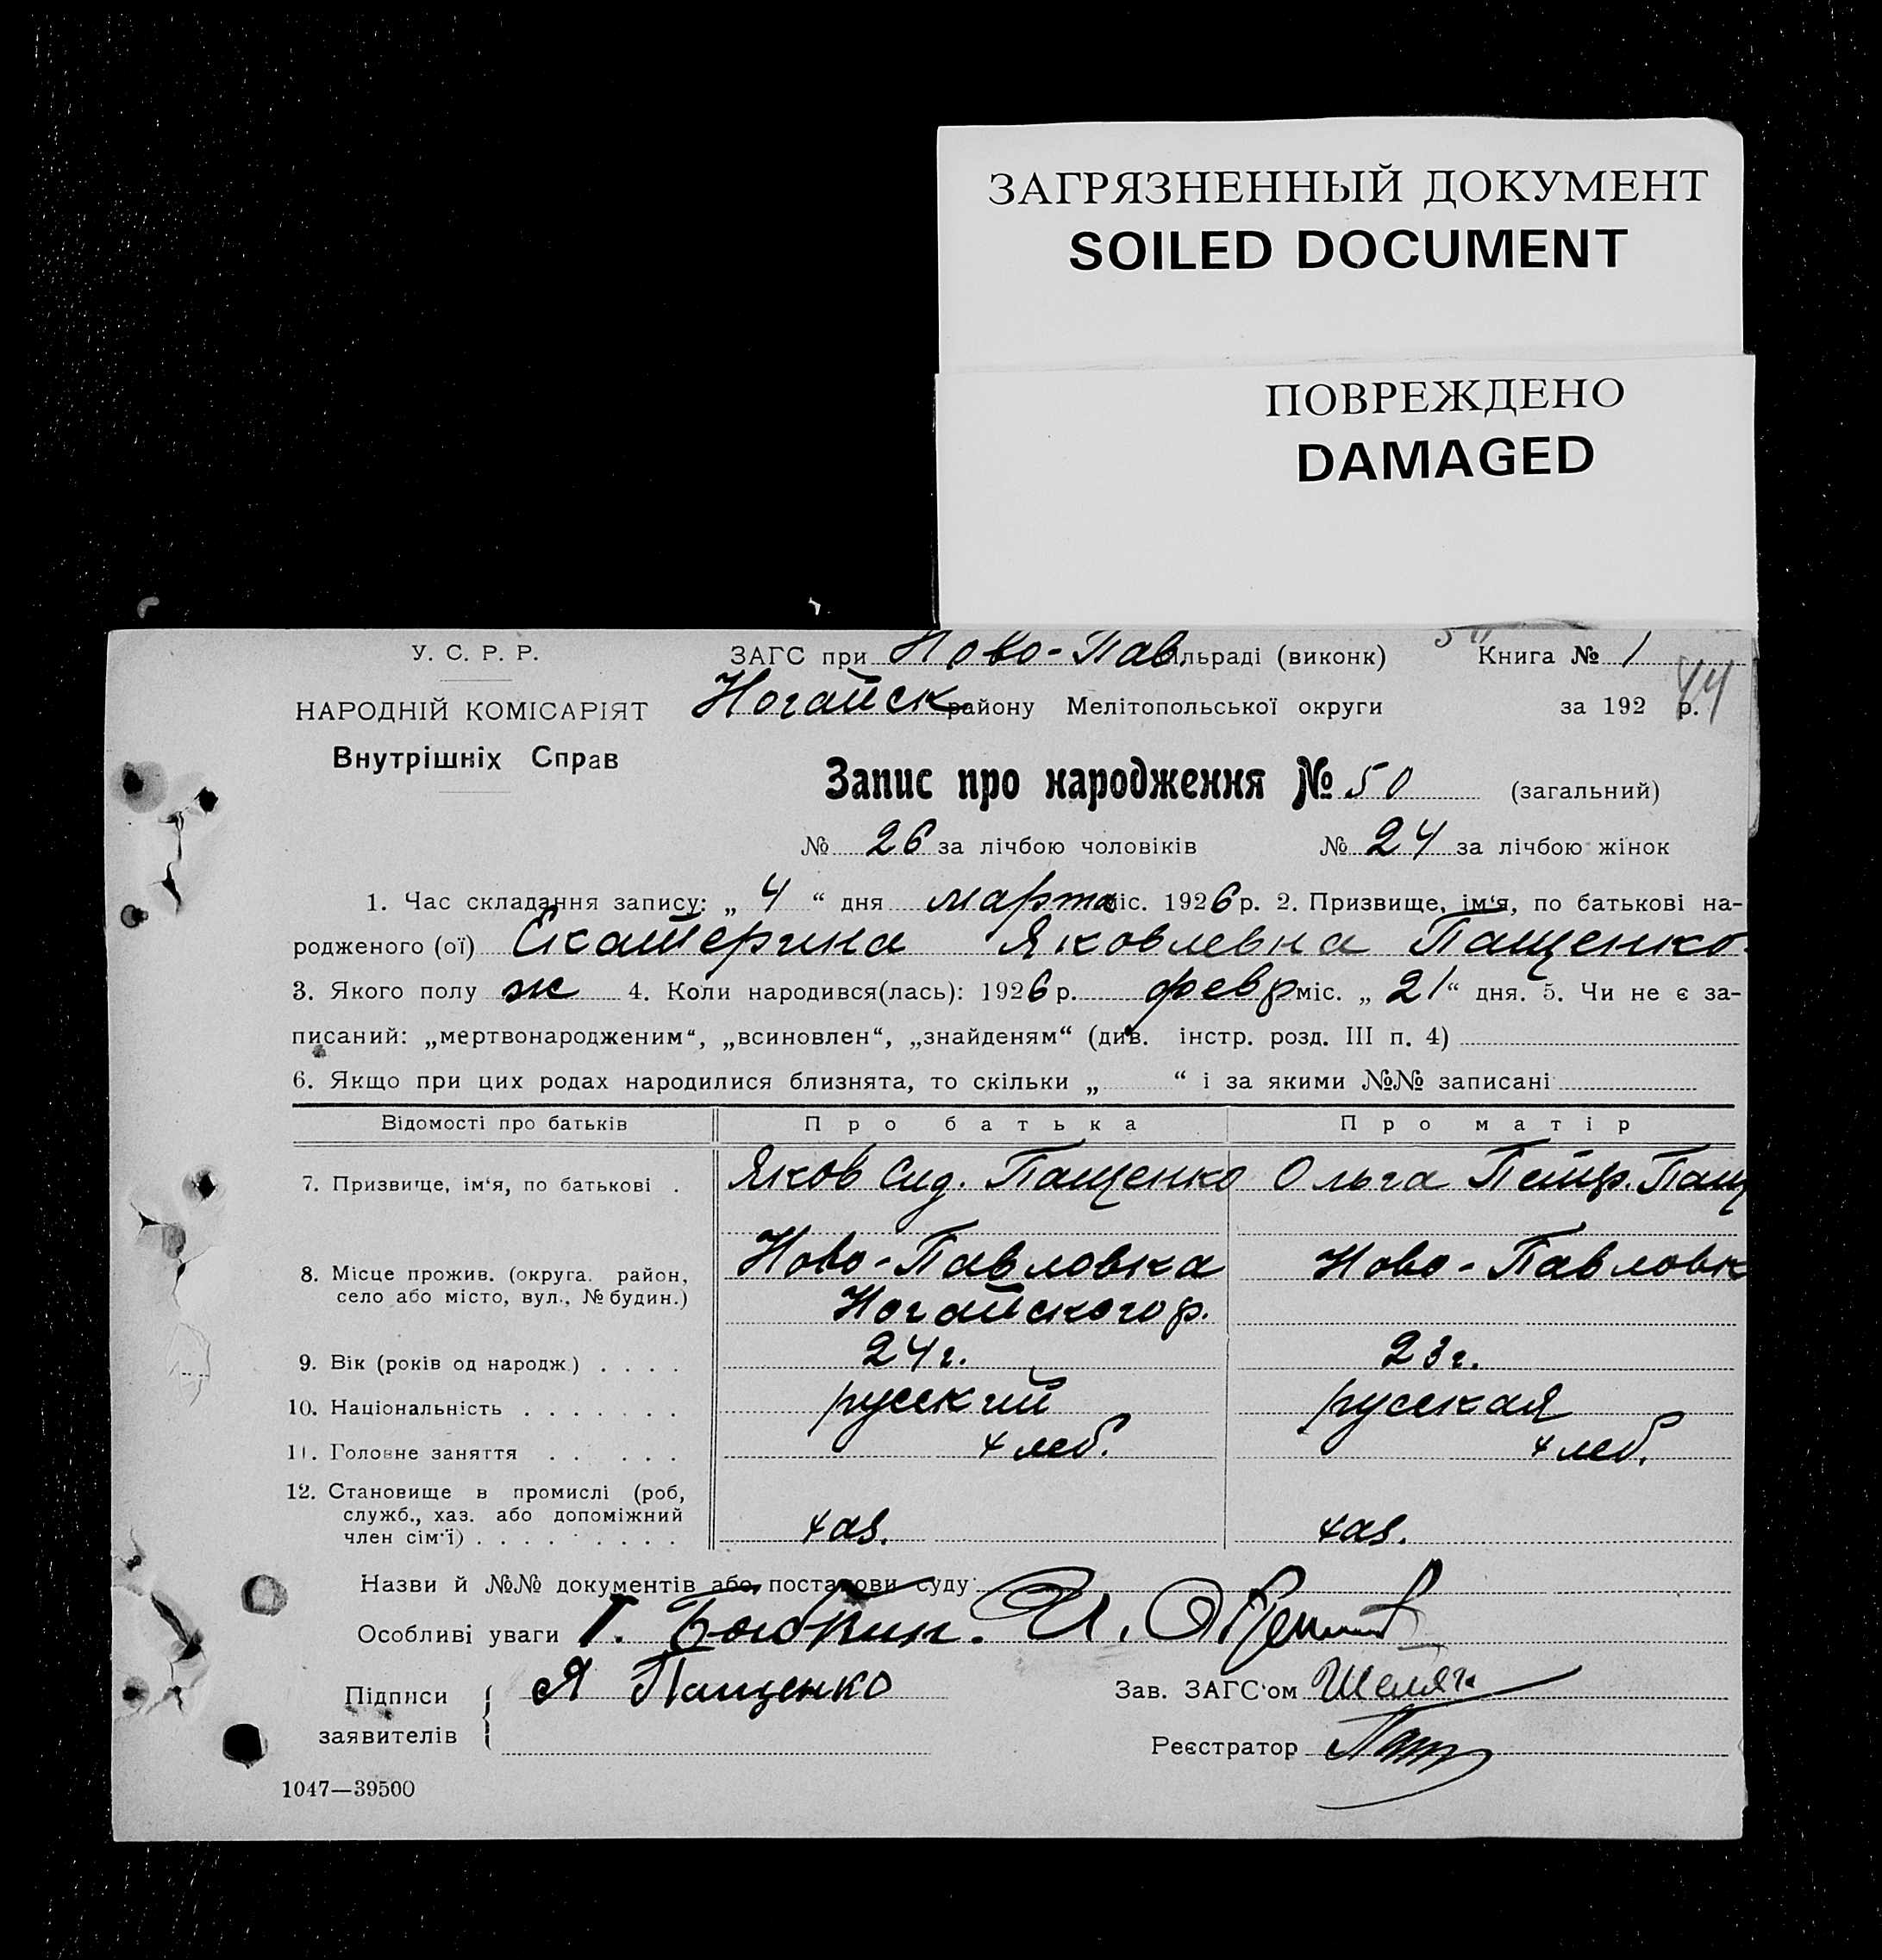 ЗАГРЯЗНЕННЫЙ ДОКУМЕНТ
SOILED DOCUMENT
ПОВРЕЖДЕНО
DAMAGED
У. С. Р. Р.
ЗАГС при Ново-Пав. ільраді (виконк) Книга № 1
НАРОДНІЙ КОМІСАРІЯТ
Ногайск району Мелітопольської округи за 192 р.
44
Внутрішніх Справ
Запис про народження № 50 (загальний)
№ 26 за лічбою чоловіків № 24 за лічбою жінок
1. Час складання запису: „ 4 “ дня марта міс. 1926 р. 2. Призвище, ім‘я, по батькові на-
родженого (ої) Екатерина Яковлевна Пащенко.
3. Якого полу ж 4. Коли народився(лась): 1926 р. февр міс. „ 21 “ дня. 5. Чи не є за-
писаний: „мертвонародженим“, „всиновлен“, „знайденям“ (див. інстр. розд. III п. 4)
6. Якщо при цих родах народилися близнята, то скільки „ “ і за якими №№ записані
Відомості про батьків Про батька Про матір
7. Призвище, ім‘я, по батькові . Яков Сид. Пащенко Ольга Петр. Пащ
8. Місце прожив. (округа. район, Ново-Павловка Ново-Павловк
село або місто, вул., № будин.) Ногайского р.
9. Вік (років од народж.) . . . . 24 г. 23 г.
10. Національність . . . . . . . русский русская
11. Головне заняття . . . . . . хлеб. хлеб.
12. Становище в промислі (роб,
служб., хаз. або допоміжний
член сім‘ї) . . . . . . . . . хаз. хаз.
Назви й №№ документів або постанови суду
Особливі уваги
Підписи Я Пащенко Зав. ЗАГС‘ом
заявителів Реєстратор
1047—39500